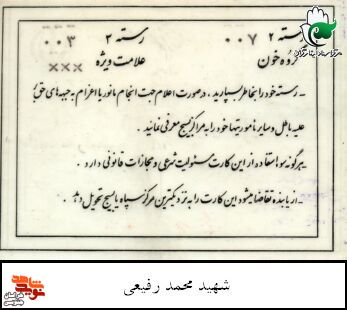 رسته ۲ ۰۰۷ رسته ۳ ۰۰۳
گروه خون علامت ویژه ×××
ـ رسته خود را بخاطر بسپارید، در صورت اعلام جهت انجام مانور یا اعزام به جبهه های حق
علیه باطل و سایر مأموریتها خود را به مراکز بسیج معرفی نمائید.
ـ هرگونه سوء استفاده از این کارت مسئولیت شرعی و مجازات قانونی دارد.
ـ از یابنده تقاضا میشود این کارت را به نزدیکترین مرکز سپاه یا بسیج تحویل دهد.
شهید محمد رفیعی